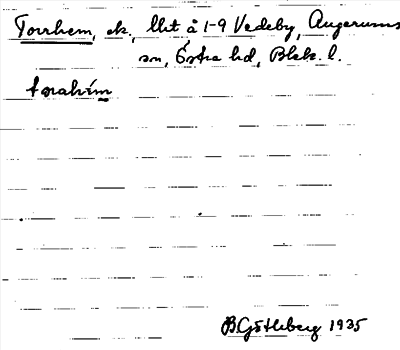 Torrhem, ek., lht å 1-9 Vedeby, Augerums
sn, Östra hd, Blek. l.
tɷrahím
B Götleberg 1935